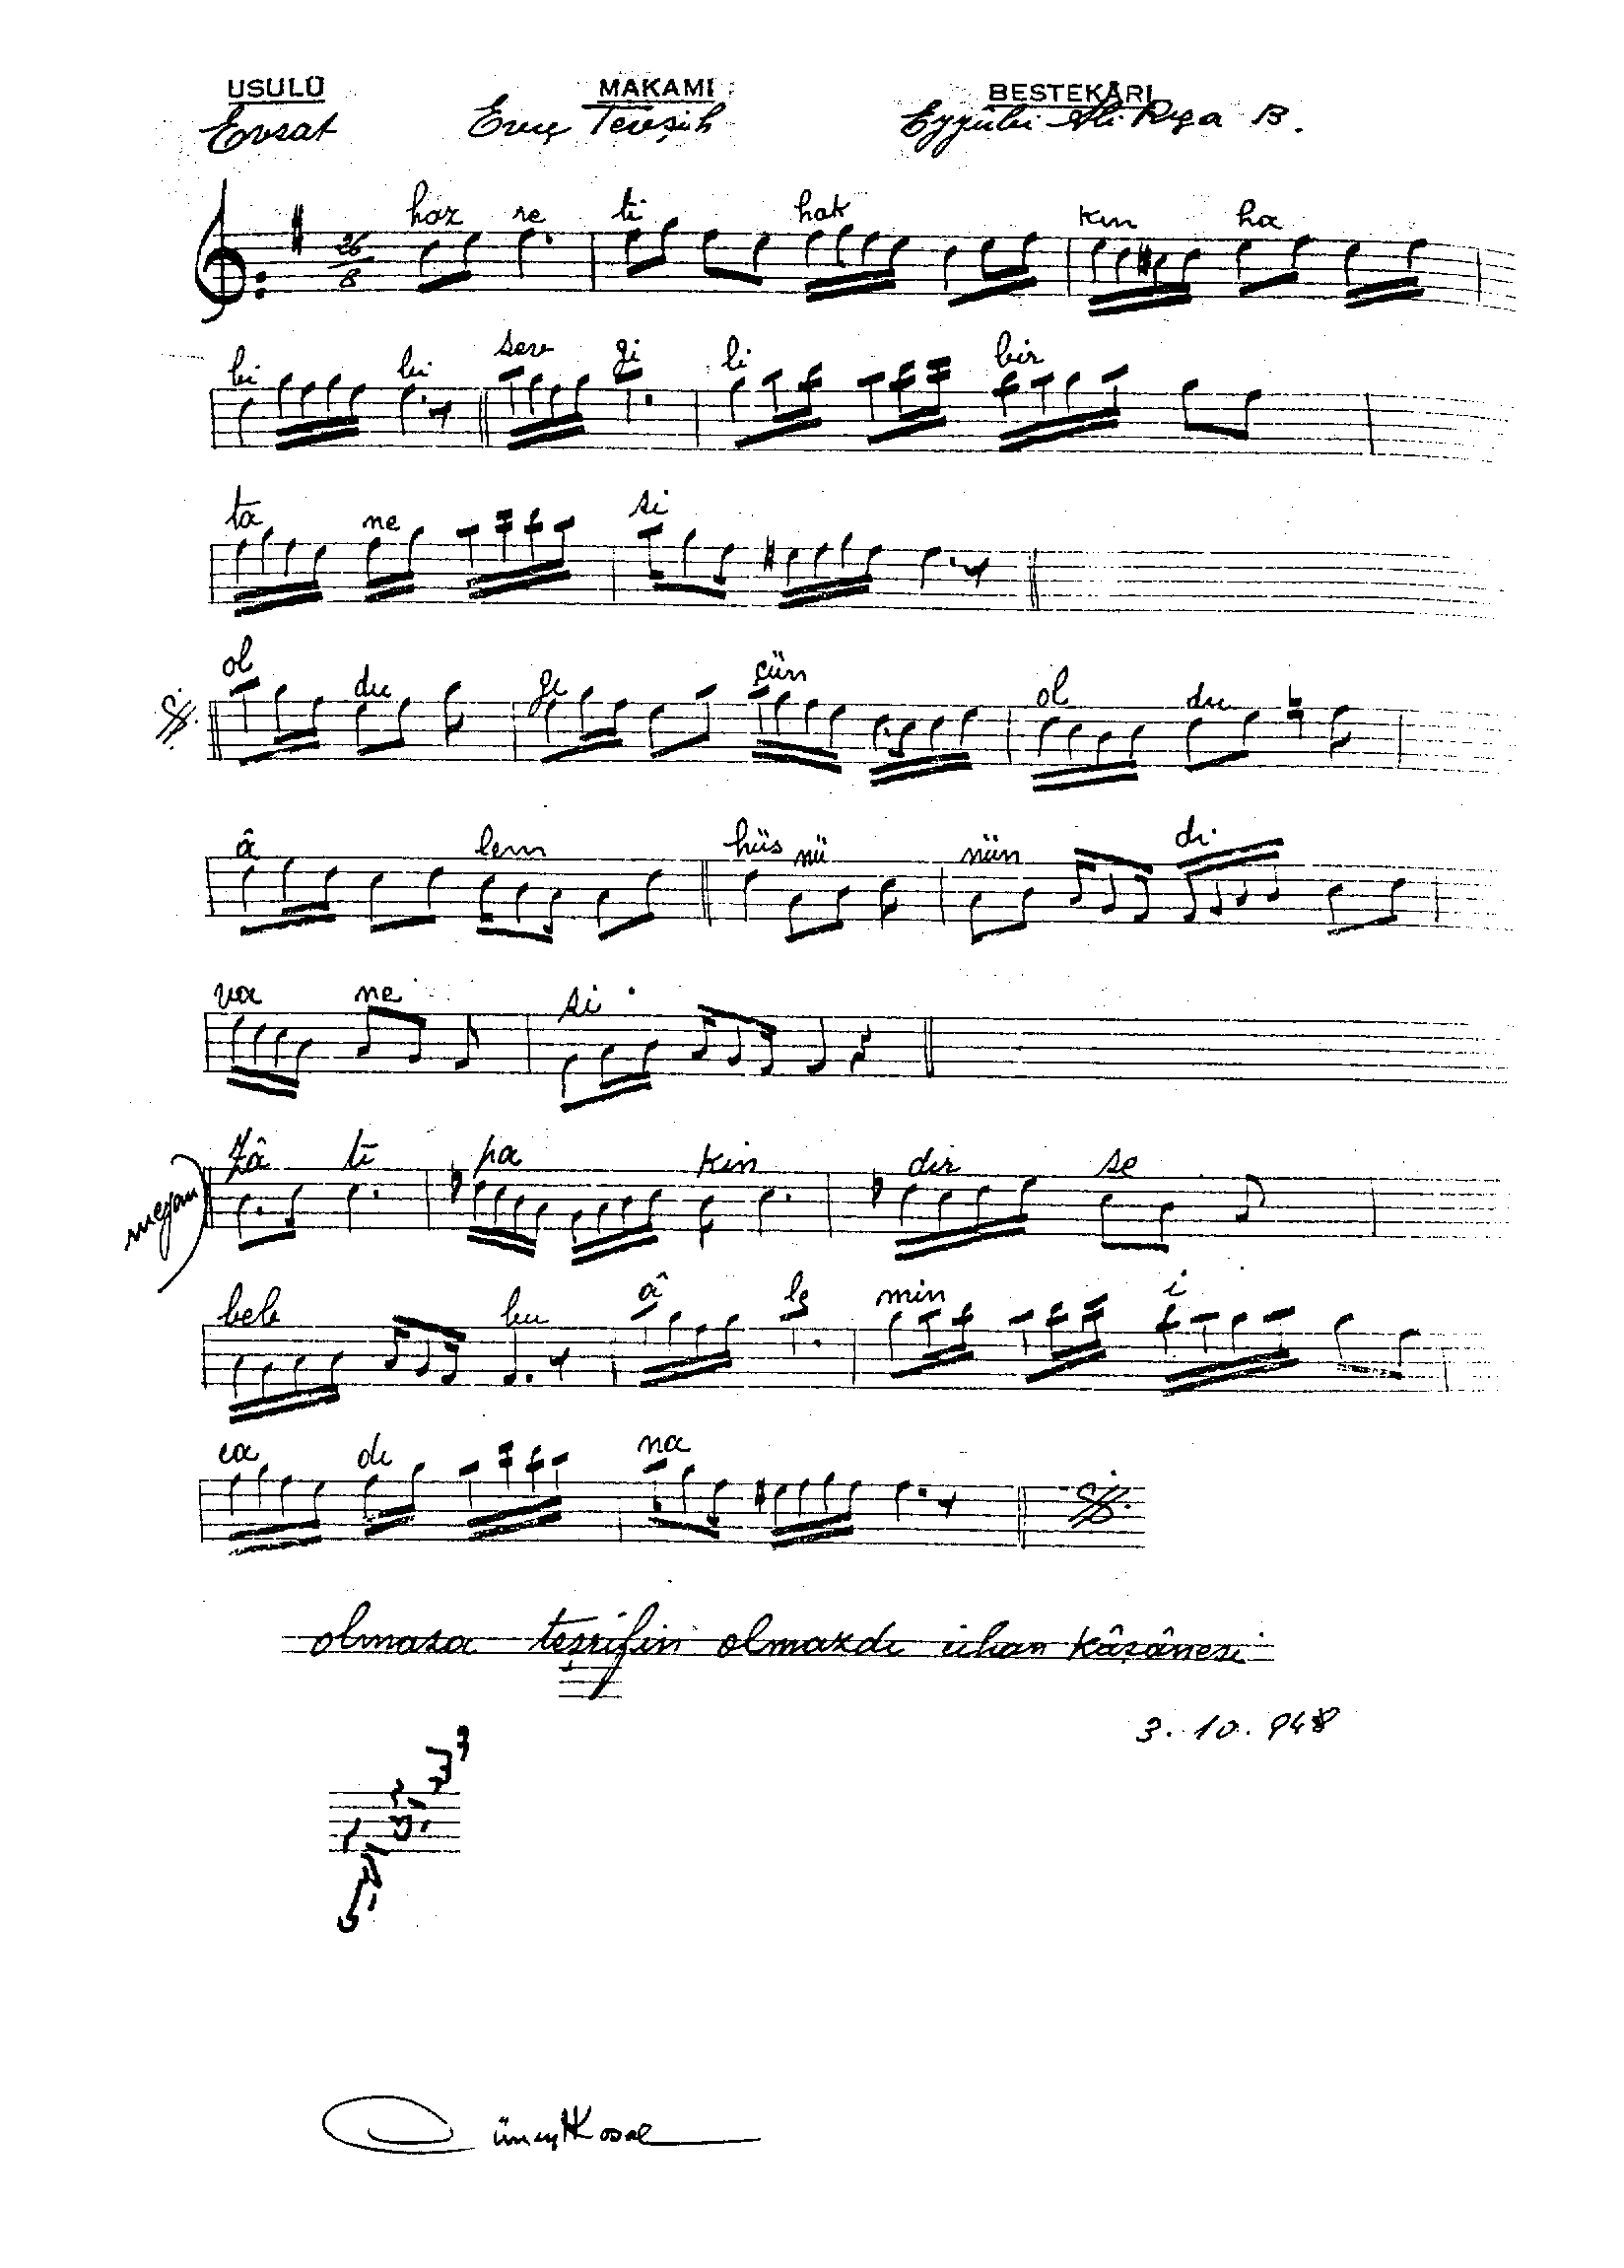 USULÜ MAKAMI BESTEKÂRI
Evsat Eviç Tevşih Eyyûbi Ali Rıza B.
26/8 haz re ti hak kın ha
bi bi sev gi li bir
ta ne si
ol du ge çün ol du
â lem hüs nü nün di
va ne si
meyan Zâ ti pa kin dir se
beb bu â le min i
ca dı na
olmasa teşrifin olmazdı cihan kâşânesi
3.10.948
Cüneyt Kosal